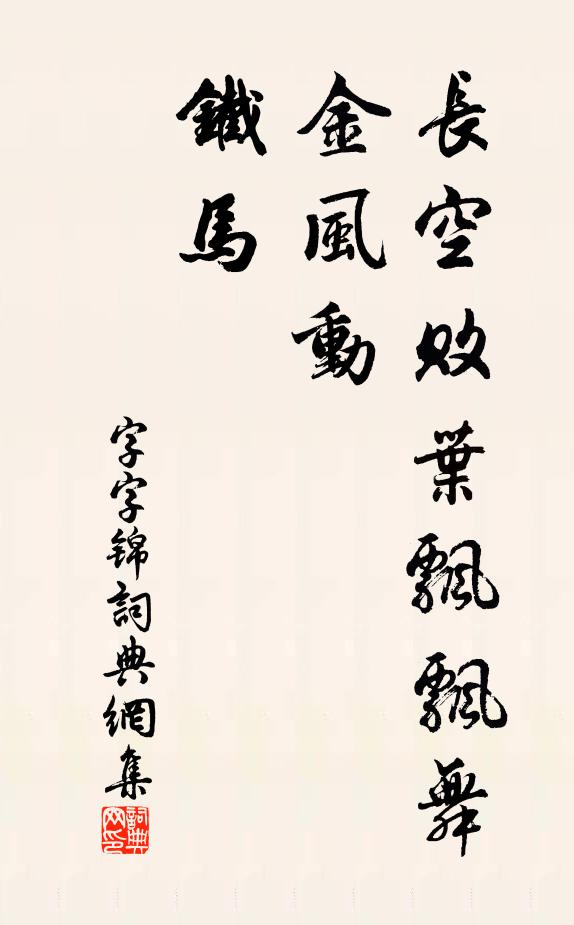 長空敗葉飄飄舞
金風動
鐵馬
字字锦詞典網集
詞典
网印